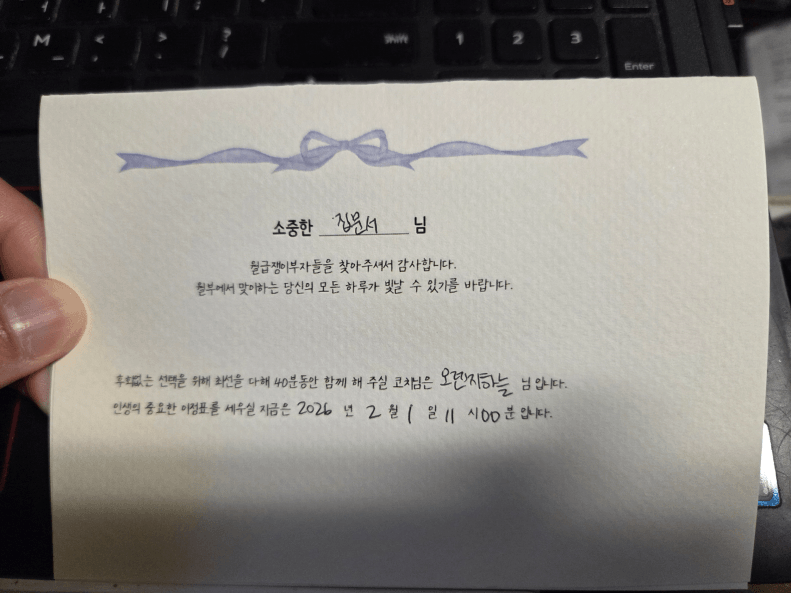 M
<
>
?
/
Shift
1
2
3
Enter
소중한 집문서 님
월급쟁이부자들을 찾아주셔서 감사합니다.
월부에서 맞이하는 당신의 모든 하루가 빛날 수 있기를 바랍니다.
후회없는 선택을 위해 최선을 다해 40분동안 함께 해 주실 코치님은 오렌지하늘 님 입니다.
인생의 중요한 이정표를 세우실 지금은 2026 년 2 월 1 일 11 시 00 분 입니다.